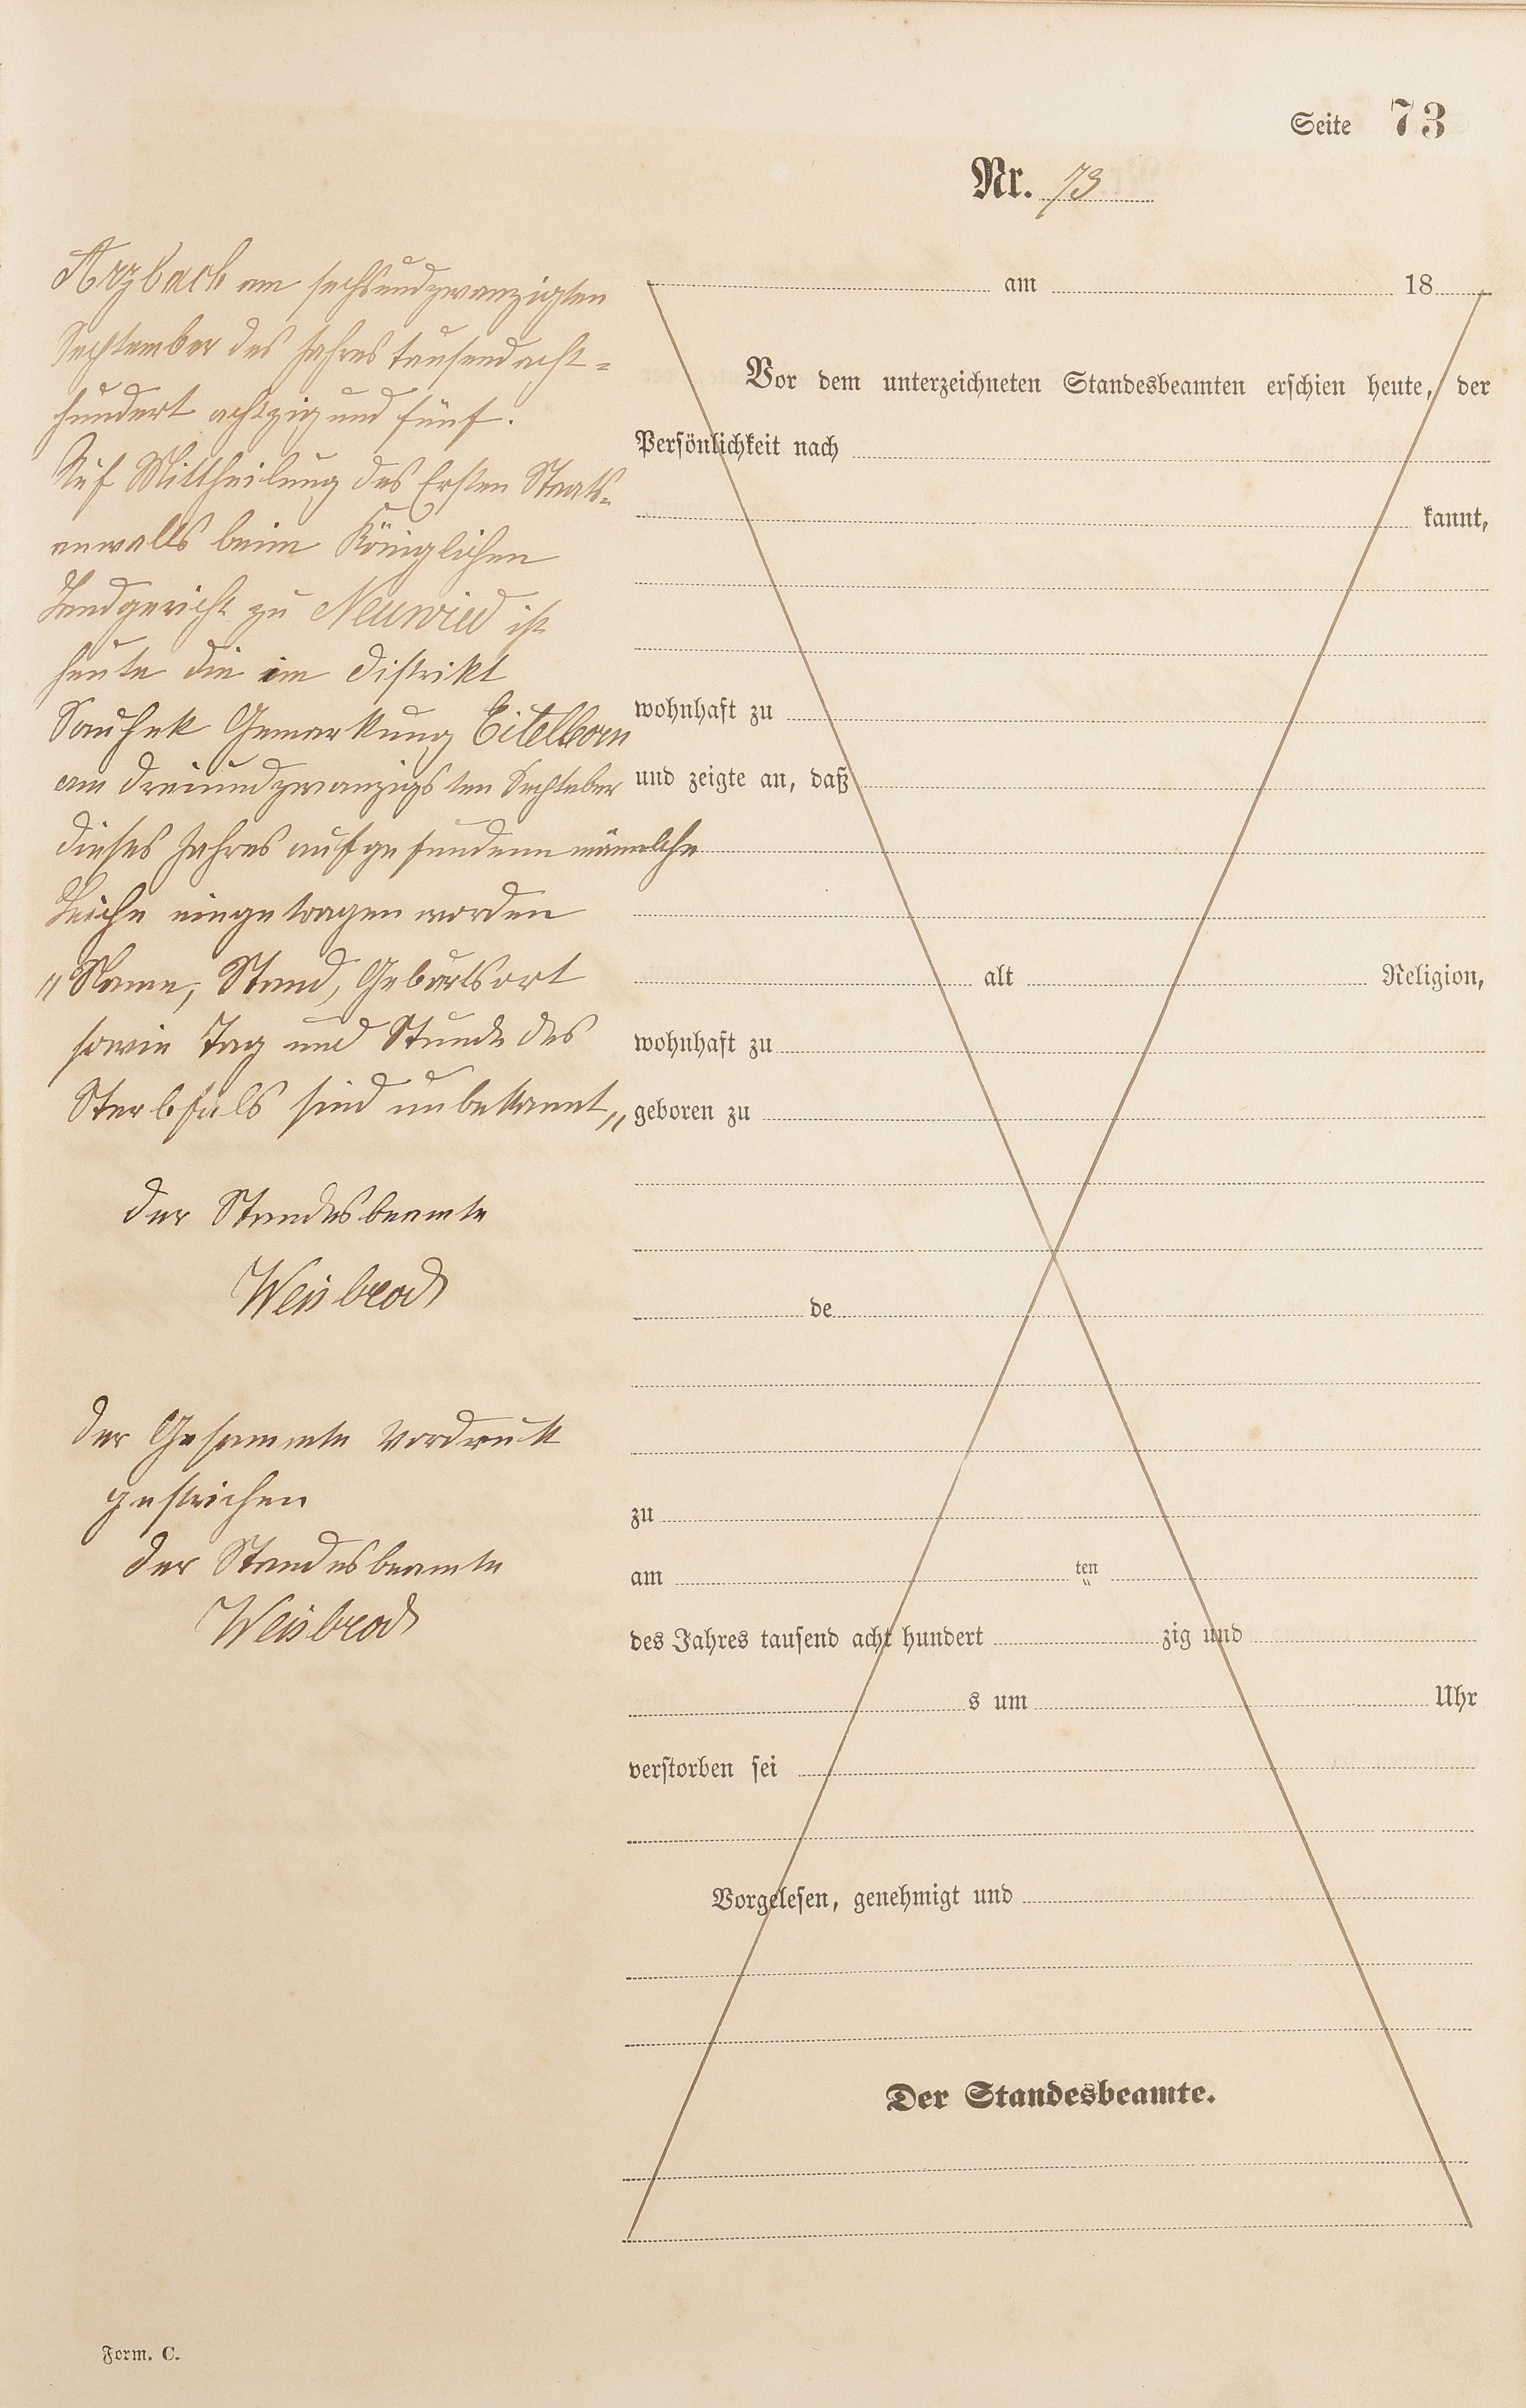 Seite 73
Nr. 73
Arzbach am sechsundzwanzigsten
September des Jahres tausendacht-
hundert achtzig und fünf.
Auf Mittheilung des Ersten Staats-
anwalts beim Königlichen
Landgericht zu Neuwied ist
heute die im Distrikt
Gemarkung Eitelborn
am dreiundzwanzigsten Septeber
dieses Jahres aufgefundene männliche
Leiche eingetragen worden
„Name, Stand, Geburtsort
sowie Tag und Stunde des
Sterbfals sind unbekannt„
Der Standesbeamte
Weisbrod
Der Gesammte Vordruck
gestrichen
Der Standesbeamte
Weisbrod
am 18
Vor dem unterzeichneten Standesbeamten erschien heute, der
Persönlichkeit nach
kannt,
wohnhaft zu
und zeigte an, daß
alt Religion,
wohnhaft zu
geboren zu
de
zu
am ten
des Jahres tausend acht hundert zig und
s um Uhr
verstorben sei
Vorgelesen, genehmigt und
Der Standesbeamte.
Form. C.